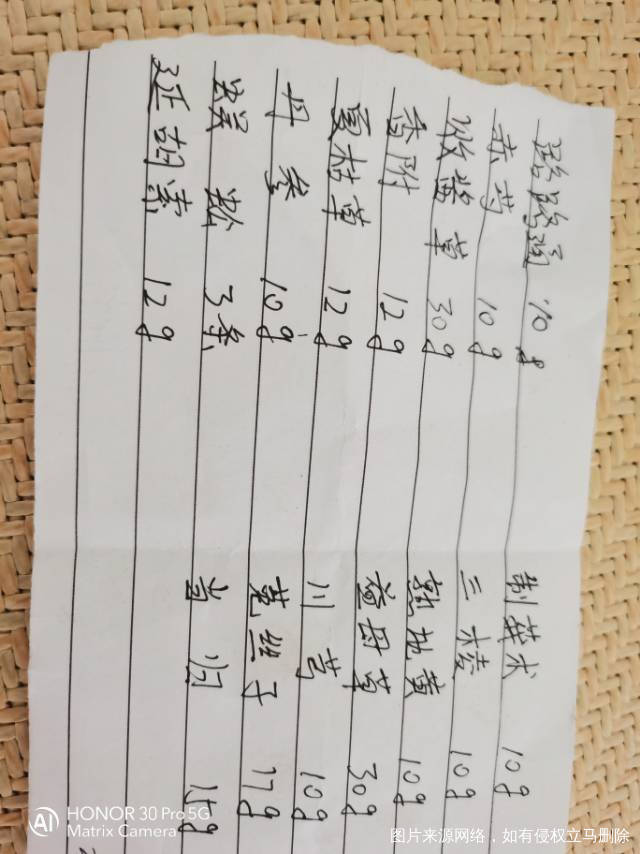 路路通 10g 制莪术 10g
赤芍 10g 三棱 10g
败酱草 30g 熟地黄 10g
香附 12g 益母草 30g
夏枯草 12g 川芎 10g
丹参 10g 菟丝子 17g
蜈蚣 3条 当归 15g
延胡索 12g
HONOR 30 Pro 5G
Matrix Camera
图片来源网络，如有侵权立马删除